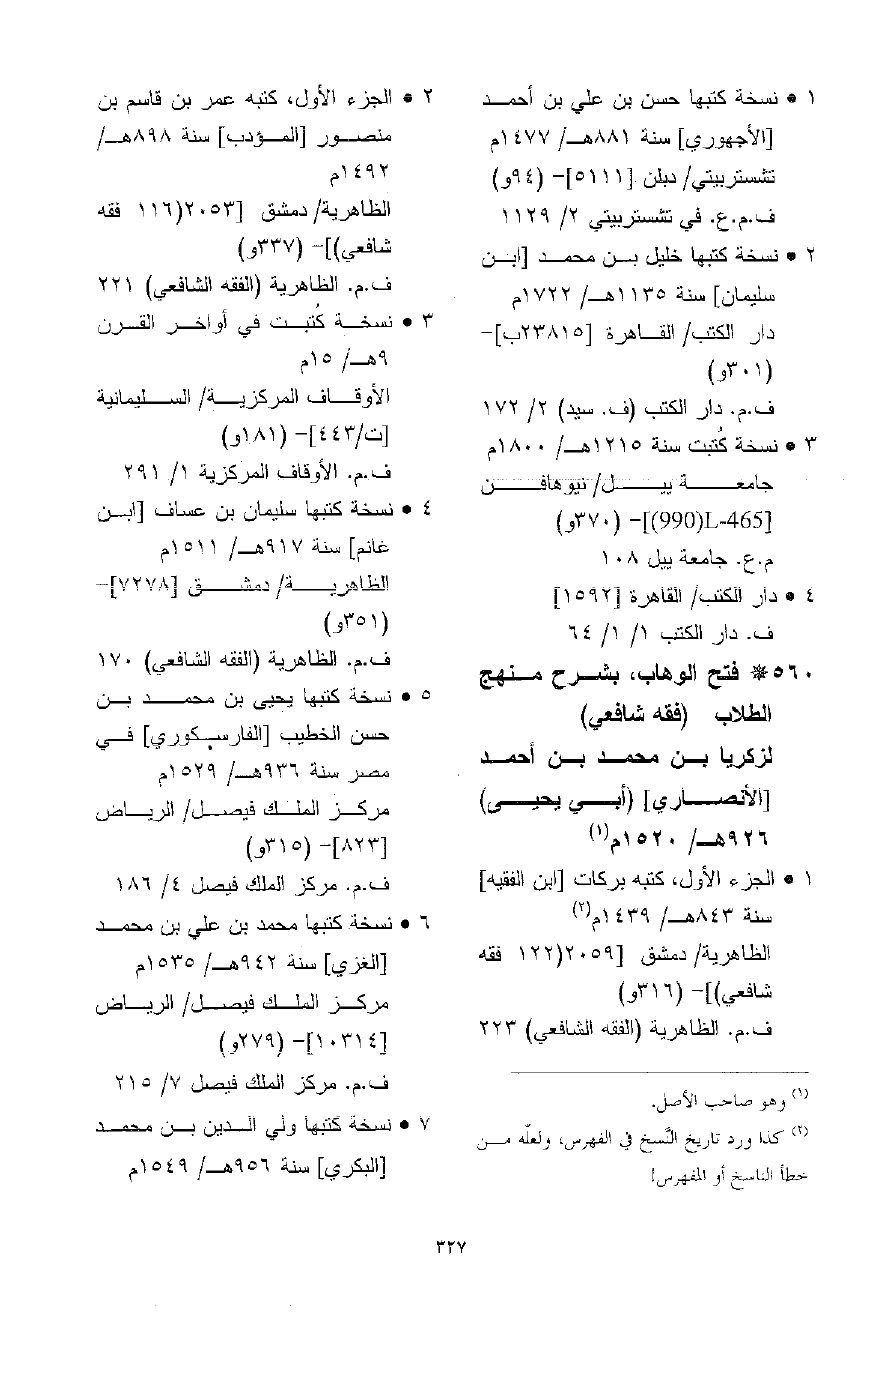 ١ • نسخة كتبها حسن بن علي بن أحمد
[الأجهوري] سنة ٨٨١هـ/ ١٤٧٧م
تشستربيتي/ دبلن [٥١١١]- (٩٤و)
ف.م.ع. في تشستربيتي ٢/ ١١٢٩
٢ • نسخة كتبها خليل بن محمد [ابن
سليمان] سنة ١١٣٥هـ/ ١٧٢٢م
دار الكتب/ القاهرة [٢٣٨١٥ب]-
(٣٠١و)
ف.م. دار الكتب (ف. سيد) ٢/ ١٧٢
٣ • نسخة كُتبت سنة ١٢١٥هـ/ ١٨٠٠م
جامعة ييل/ نيوهافن
[L-465(990)]- (٣٧٠و)
م.ع. جامعة ييل ١٠٨
٤ • دار الكتب/ القاهرة [١٥٩٢]
ف. دار الكتب ١/ ١/ ٦٤
٥٦٠ * فتح الوهاب، بشرح منهج
الطلاب (فقه شافعي)
لزكريا بن محمد بن أحمد
[الأنصاري] (أبي يحيى)
٩٢٦هـ/ ١٥٢٠م(١)
١ • الجزء الأول، كتبه بركات [ابن الفقيه]
سنة ٨٤٣هـ/ ١٤٣٩م(٢)
الظاهرية/ دمشق [٢٠٥٩(١٢٢ فقه
شافعي)]- (٣١٦و)
ف.م. الظاهرية (الفقه الشافعي) ٢٢٣
(١) وهو صاحب الأصل.
(٢) كذا ورد تاريخ النَّسخ في الفهرس، ولعلّه من
خطأ الناسخ أو المفهرس!
٢ • الجزء الأول، كتبه عمر بن قاسم بن
منصور [المؤدب] سنة ٨٩٨هـ/
١٤٩٢م
الظاهرية/ دمشق [٢٠٥٣(١١٦ فقه
شافعي)]- (٣٣٧و)
ف.م. الظاهرية (الفقه الشافعي) ٢٢١
٣ • نسخة كُتبت في أواخر القرن
٩هـ/ ١٥م
الأوقاف المركزية/ السليمانية
[ت/٤٤٣]- (١٨١و)
ف.م. الأوقاف المركزية ١/ ٢٩١
٤ • نسخة كتبها سليمان بن عساف [ابن
غانم] سنة ٩١٧هـ/ ١٥١١م
الظاهرية/ دمشق [٧٢٧٨]-
(٣٥١و)
ف.م. الظاهرية (الفقه الشافعي) ١٧٠
٥ • نسخة كتبها يحيى بن محمد بن
حسن الخطيب [الفارسكوري] في
مصر سنة ٩٣٦هـ/ ١٥٢٩م
مركز الملك فيصل/ الرياض
[٨٢٣]- (٣١٥و)
ف.م. مركز الملك فيصل ٤/ ١٨٦
٦ • نسخة كتبها محمد بن علي بن محمد
[الغزي] سنة ٩٤٢هـ/ ١٥٣٥م
مركز الملك فيصل/ الرياض
[١٠٣١٤]- (٢٧٩و)
ف.م. مركز الملك فيصل ٧/ ٢١٥
٧ • نسخة كتبها ولي الدين بن محمد
[البكري] سنة ٩٥٦هـ/ ١٥٤٩م
٣٢٧